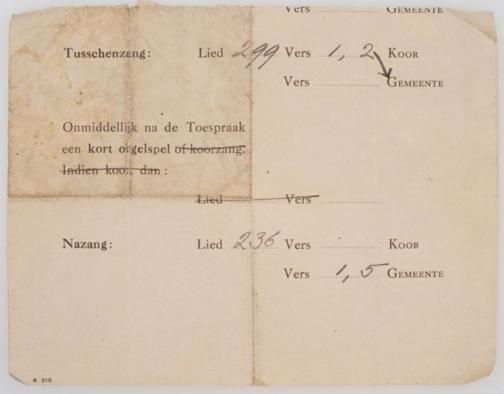 Vers GEMEENTE
Tusschenzang: Lied 299 Vers 1, 2 KOOR
Vers GEMEENTE
Onmiddellijk na de Toespraak
een kort orgelspel of koorzang.
Indien koor, dan:
Lied Vers
Nazang: Lied 236 Vers KOOR
Vers 1, 5 GEMEENTE
K 216